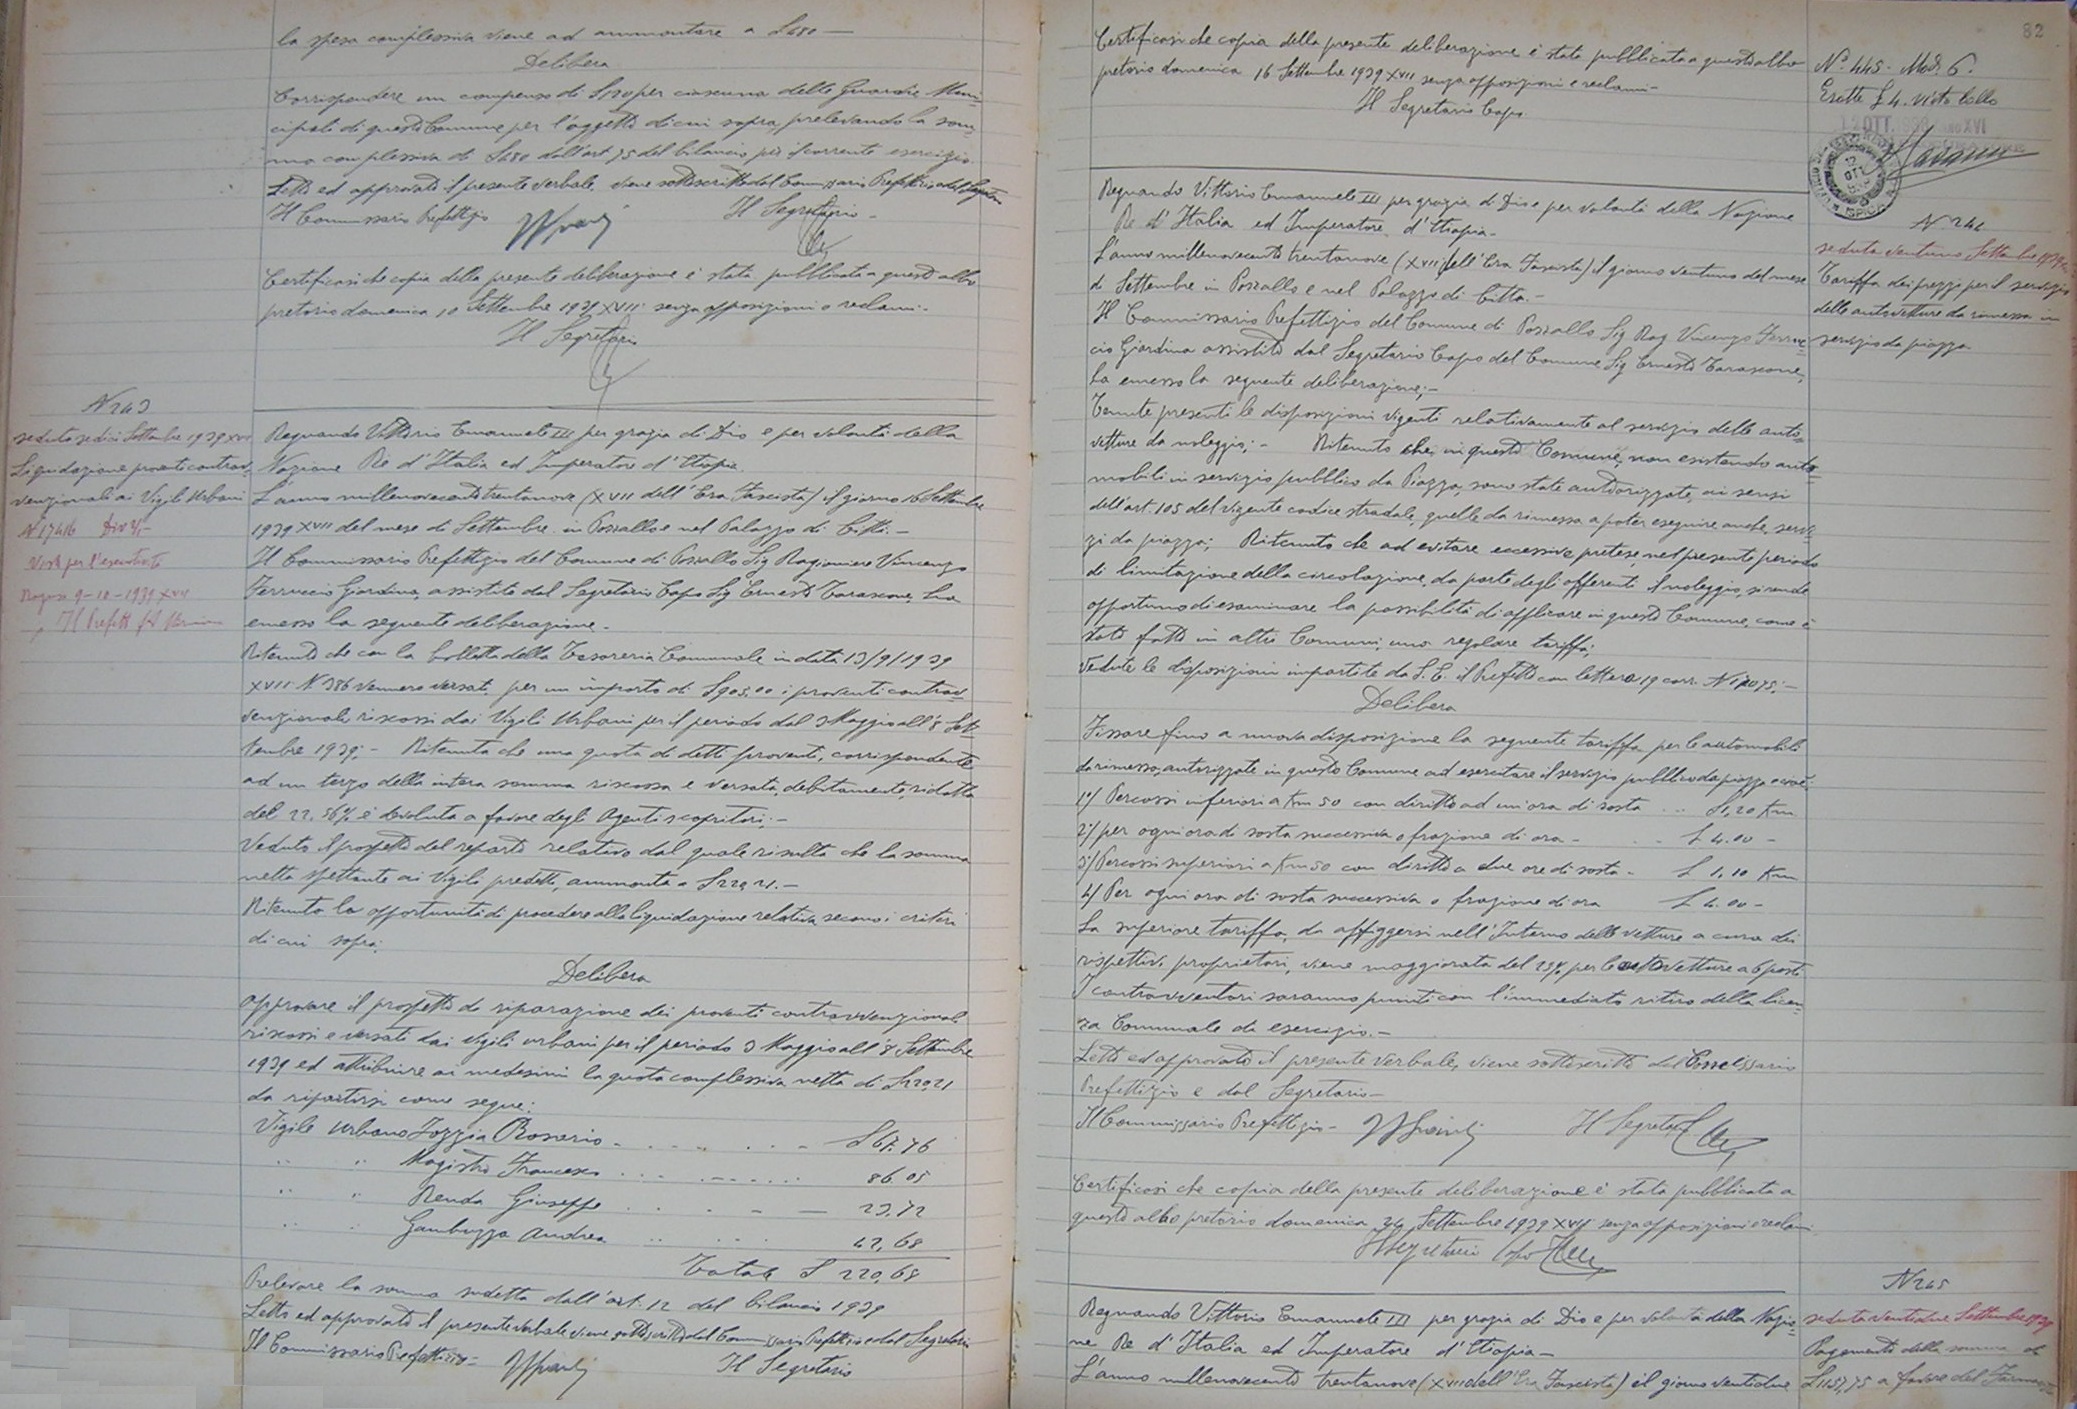 la spesa complessiva viene ad ammontare a £480 —
Delibera
Corrispondere un compenso di £120 per ciascuna delle Guardie Muni-
cipali di questo Comune per l'oggetto di cui sopra, prelevando la som-
ma complessiva di £480 dall'art 75 del bilancio per il corrente esercizio
Letto ed approvato il presente verbale, viene sottoscritto dal Commissario Prefettizio e dal Segretario
Il Commissario Prefettizio
Il Segretario
Certificasi che copia della presente deliberazione è stata pubblicata a questo albo
pretorio domenica 10 Settembre 1939 XVII senza opposizioni o reclami.-
Il Segretario
N 243
seduta sedici Settembre 1939 XVII
Liquidazione proventi contrav-
venzionali ai Vigili Urbani
N 17416 Div
Visto per l'esecutorietà
Ragusa 9-10-1939 XVII
Il Prefetto
Regnando Vittorio Emanuele III per grazia di Dio e per volontà della
Nazione Re d'Italia ed Imperatore d'Etiopia.
L'anno millenovecentotrentanove (XVII dell'Era Fascista) il giorno 16 Settembre
1939 XVII del mese di Settembre in Pozzallo e nel Palazzo di Città.-
Il Commissario Prefettizio del Comune di Pozzallo Sig Ragioniere Vincenzo
Ferruccio Giardina, assistito dal Segretario Capo Sig Ernesto Tarascone, ha
emesso la seguente deliberazione.
Ritenuto che con la bolletta della Tesoreria Comunale in data 13/9/1939
XVII N. 386 vennero versati, per un importo di £905,00 i proventi contrav-
venzionali riscossi dai Vigili Urbani per il periodo dal 3 Maggio all'8 Set-
tembre 1939;- Ritenuta che una quota di detti proventi, corrispondente
ad un terzo della intera somma riscossa e versata, debitamente, ridotta
del 22.56% è devoluta a favore degli Agenti scopritori;-
Veduto il prospetto del reparto relativo dal quale risulta che la somma
netta spettante ai Vigili predetti, ammonta a £220,21.-
Ritenuto la opportunità di procedere alla liquidazione relativa secondo i criteri
di cui sopra;
Delibera
Approvare il prospetto di riparazione dei proventi contravvenzionali
riscossi e versati dai vigili urbani per il periodo 3 Maggio all'8 Settembre
1939 ed attribuire ai medesimi la quota complessiva netta di £220,21
da ripartirsi come segue:
Vigile Urbano Iozzia Rosario - £67.76
" " Magistri Francesco 86.05
" " Renda Giuseppe 23,72
" " Gambuzza Andrea 42,68
Totale £ 220,68
Prelevare la somma suddetta dall'art. 12 del bilancio 1939
Letto ed approvato il presente verbale viene sottoscritto dal Commissario Prefettizio e dal Segretario
Il Commissario Prefettizio=
Il Segretario
82
Certificasi che copia della presente deliberazione è stata pubblicata a questo albo
pretorio domenica 16 Settembre 1939 XVII senza opposizioni e reclami-
Il Segretario Capo
N° 445. Mod. 6.
Esatte £ 4. visto bollo
12 OTT. 1939 ANNO XVI
Regnando Vittorio Emanuele III per grazia di Dio e per volontà della Nazione
Re d'Italia ed Imperatore d'Etiopia-
L'anno millenovecento trentanove (XVII dell'Era Fascista) il giorno ventuno del mese
di Settembre in Pozzallo e nel Palazzo di Città.-
Il Commissario Prefettizio del Comune di Pozzallo Sig Rag Vincenzo Ferruc-
cio Giardina assistito dal Segretario Capo del Comune Sig Ernesto Tarascone,
ha emesso la seguente deliberazione;-
N 244
seduta ventuno Settembre 1939
Tariffa dei prezzi per il servizio
delle autovetture da rimessa in
servizio da piazza
Tenute presenti le disposizioni vigenti relativamente al servizio delle auto-
vetture da noleggio;- Ritenuto che, in questo Comune, non esistendo auto
mobili in servizio pubblico da Piazza, sono state autorizzate, ai sensi
dell'art. 105 del vigente codice stradale, quelle da rimessa a poter eseguire anche servi-
zi da piazza; Ritenuto che ad evitare eccessive pretese, nel presente periodo
di limitazione della circolazione, da parte degli offerenti il noleggio, si rende
opportuno di esaminare la possibilità di applicare in questo Comune, come è
stato fatto in altri Comuni, una regolare tariffa;
Vedute le disposizioni impartite da S. E. il Prefetto con lettera 19 corr. N
Delibera
Fissare fino a nuova disposizione la seguente tariffa per le automobili
da rimessa, autorizzate in questo Comune ad esercitare il servizio pubblico da piazza e cioè:
1°/ Percorsi inferiori a Km 50 con diritto ad un'ora di sosta .. £1,20 Km
2°/ per ogni ora di sosta successiva o frazione di ora - £ 4.00 -
3°/ Percorsi superiori a Km 50 con diritto a due ore di sosta - £ 1,10 Km
4/ Per ogni ora di sosta successiva o frazione di ora £ 4.00 -
La superiore tariffa, da affiggersi nell'Interno delle vetture a cura dei
rispettivi proprietari, viene maggiorata del 25% per le autovetture a 6 posti
I contravventori saranno puniti con l'immediato ritiro della licen
za Comunale di esercizio.-
Letto ed approvato il presente verbale, viene sottoscritto dal Commissario
Prefettizio e dal Segretario-
Il Commissario Prefettizio-
Il Segretario
Certificasi che copia della presente deliberazione è stata pubblicata a
questo albo pretorio domenica 24 Settembre 1939 XVII senza opposizioni e reclami
Il Segretario Capo
N 245
seduta ventidue Settembre 1939
Pagamento della somma di
£1157,75 a favore del
Regnando Vittorio Emanuele III per grazia di Dio e per volontà della Nazio-
ne Re d'Italia ed Imperatore d'Etiopia-
L'anno millenovecento trentanove (XVII dell'Era Fascista) il giorno ventidue